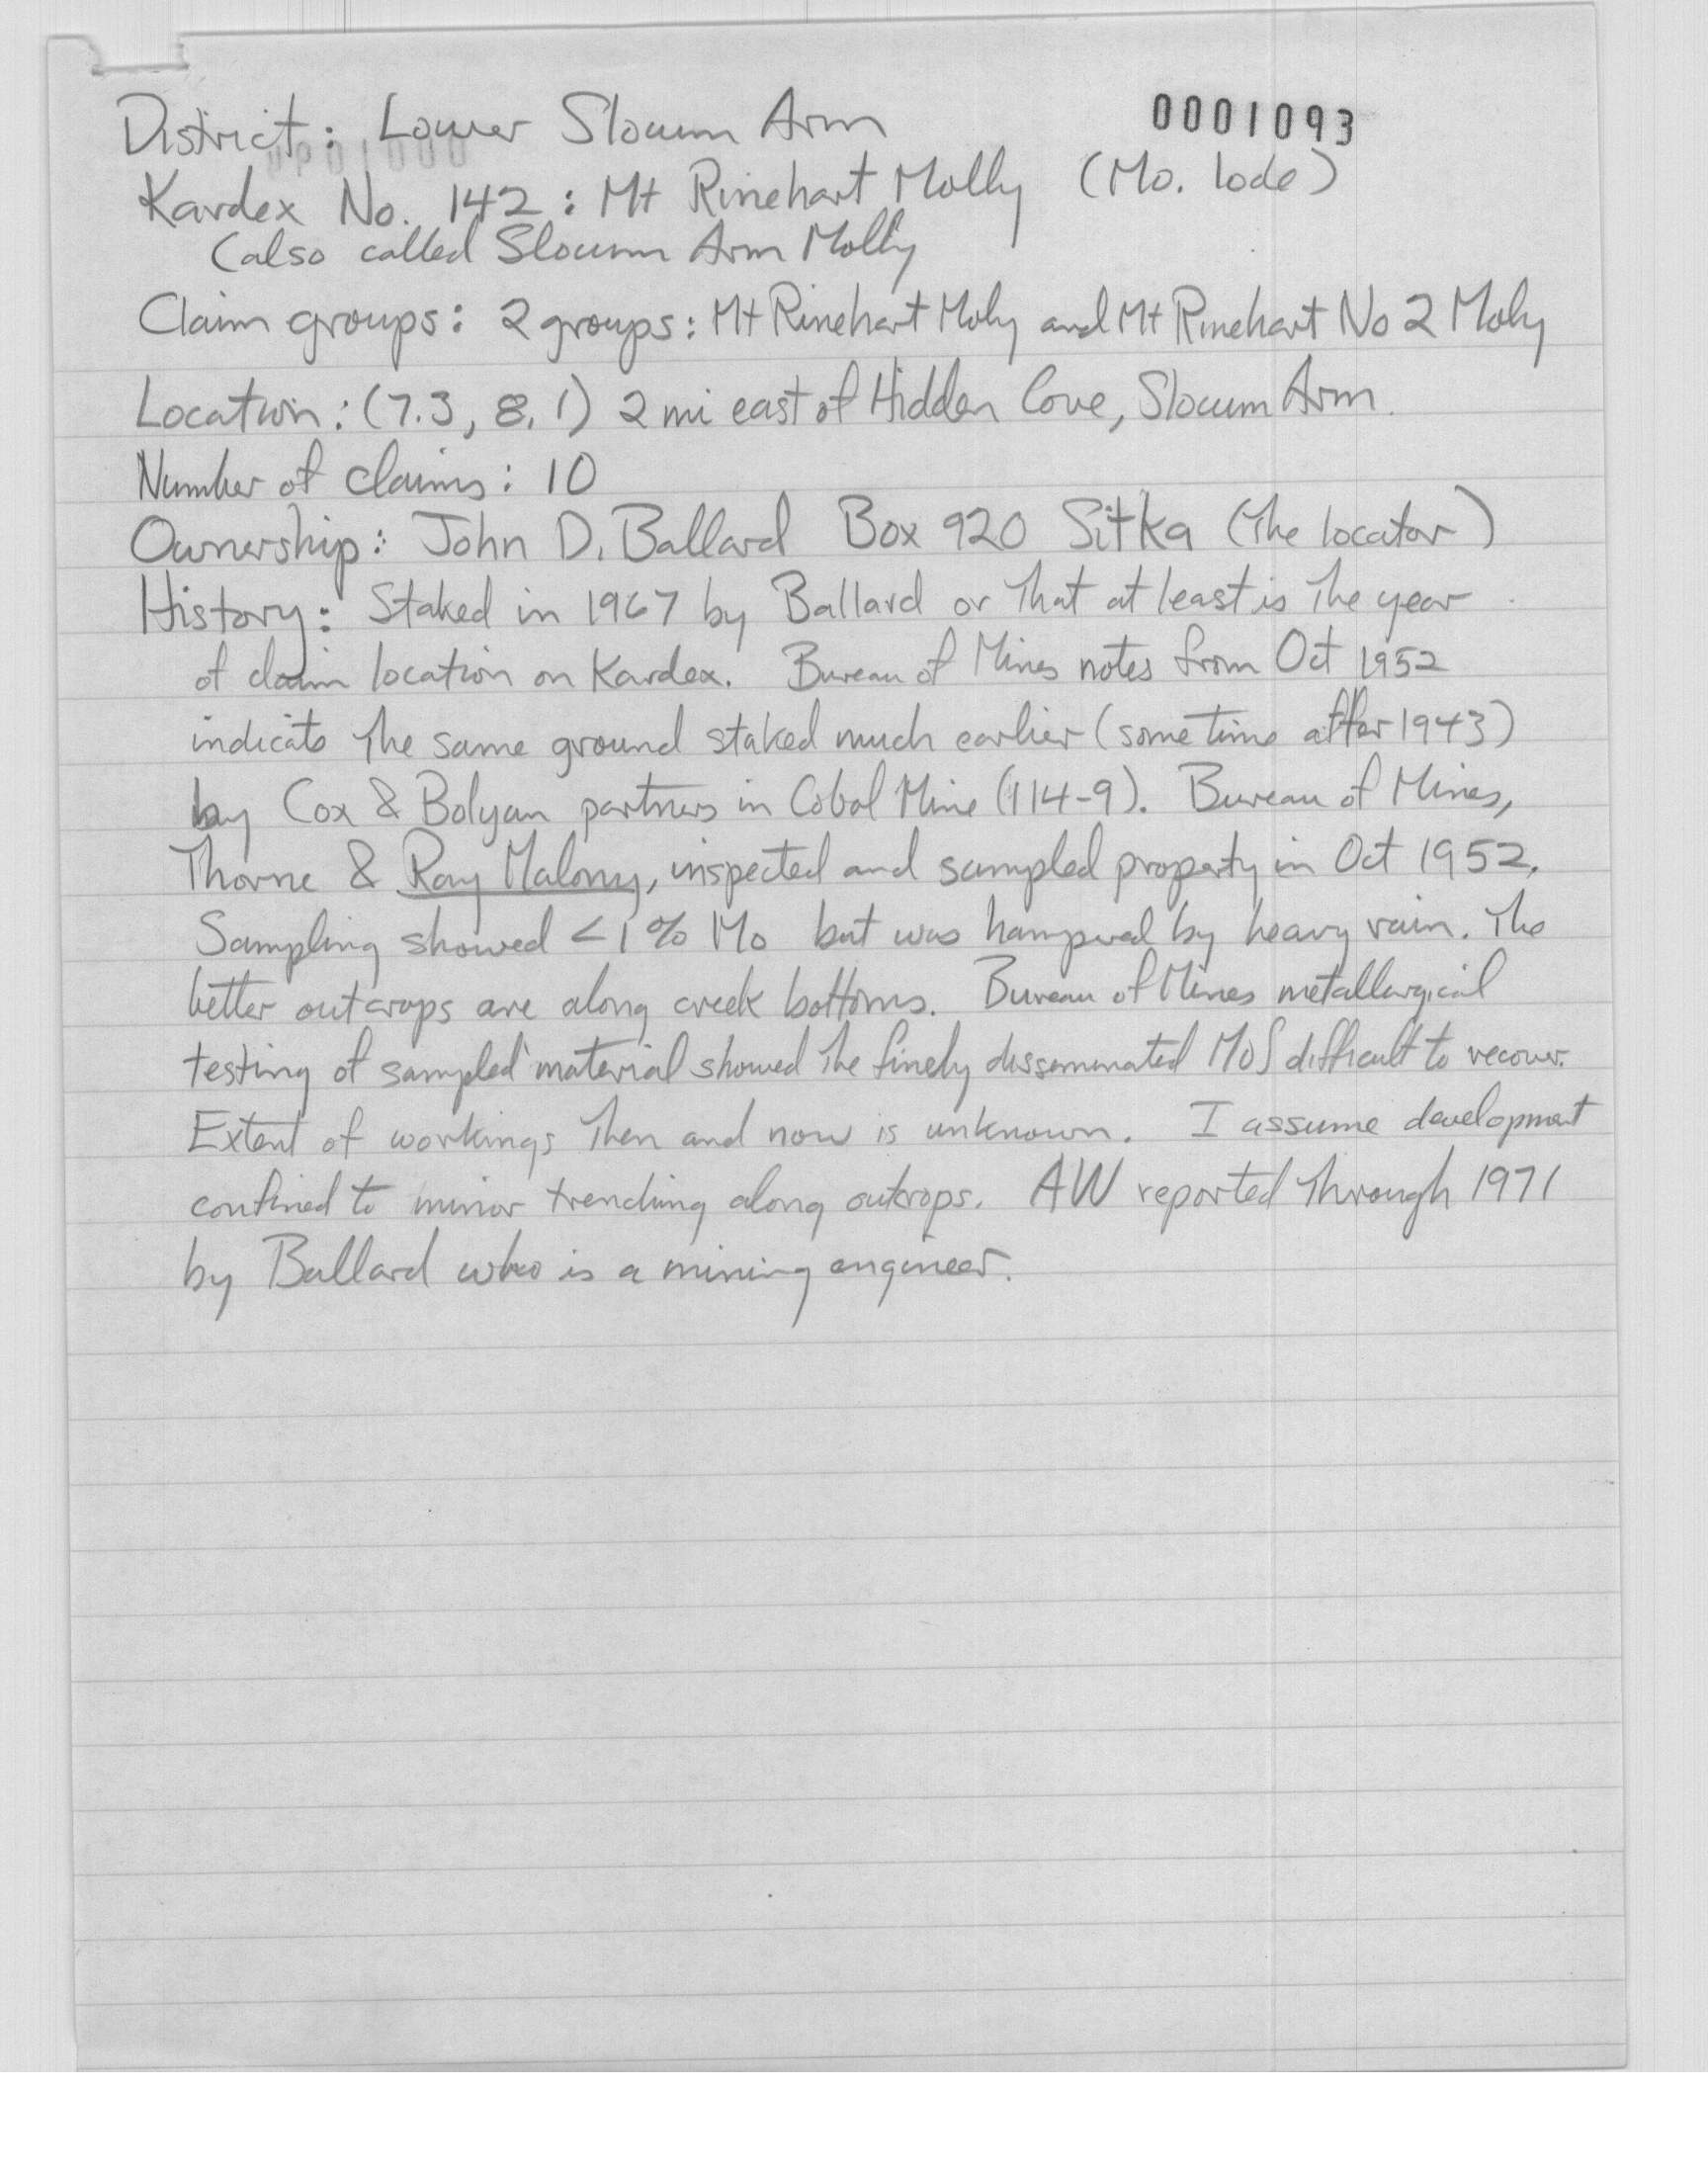 District: Lower Slocum Arm 0001093
Kardex No. 142 : Mt Rinehart Molly (Mo. lode)
(also called Slocum Arm Molly
Claim groups: 2 groups: Mt Rinehart Moly and Mt Rinehart No 2 Moly
Location: (7.3, 8.1) 2 mi east of Hidden Cove, Slocum Arm.
Number of claims: 10
Ownership: John D. Ballard Box 920 Sitka (the locator)
History: Staked in 1967 by Ballard or that at least is the year
of claim location on Kardex. Bureau of Mines notes from Oct 1952
indicate the same ground staked much earlier (some time after 1943)
by Cox & Bolyan partners in Cobol Mine (114-9). Bureau of Mines,
Thorne & Ray Malony, inspected and sampled property in Oct 1952.
Sampling showed <1% Mo but was hampered by heavy rain. The
better outcrops are along creek bottoms. Bureau of Mines metallurgical
testing of sampled material showed the finely dissemenated MoS difficult to recover.
Extent of workings then and now is unknown. I assume development
confined to minor trenching along outcrops. AW reported through 1971
by Ballard who is a mining engineer.